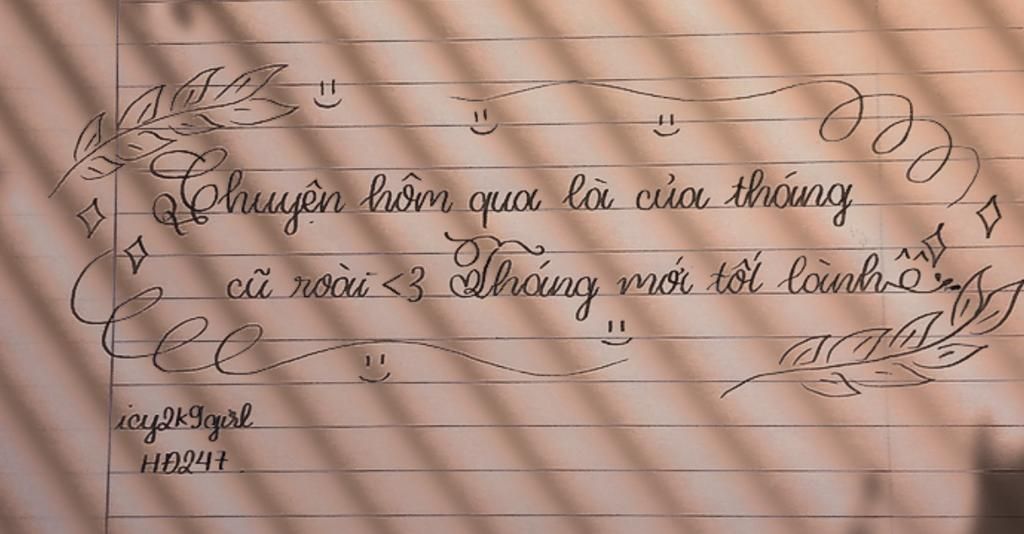 Chuyện hôm qua là của tháng
cũ roài <3 Tháng mới tốt lành ^ô^
icy2k9girl
HĐ247